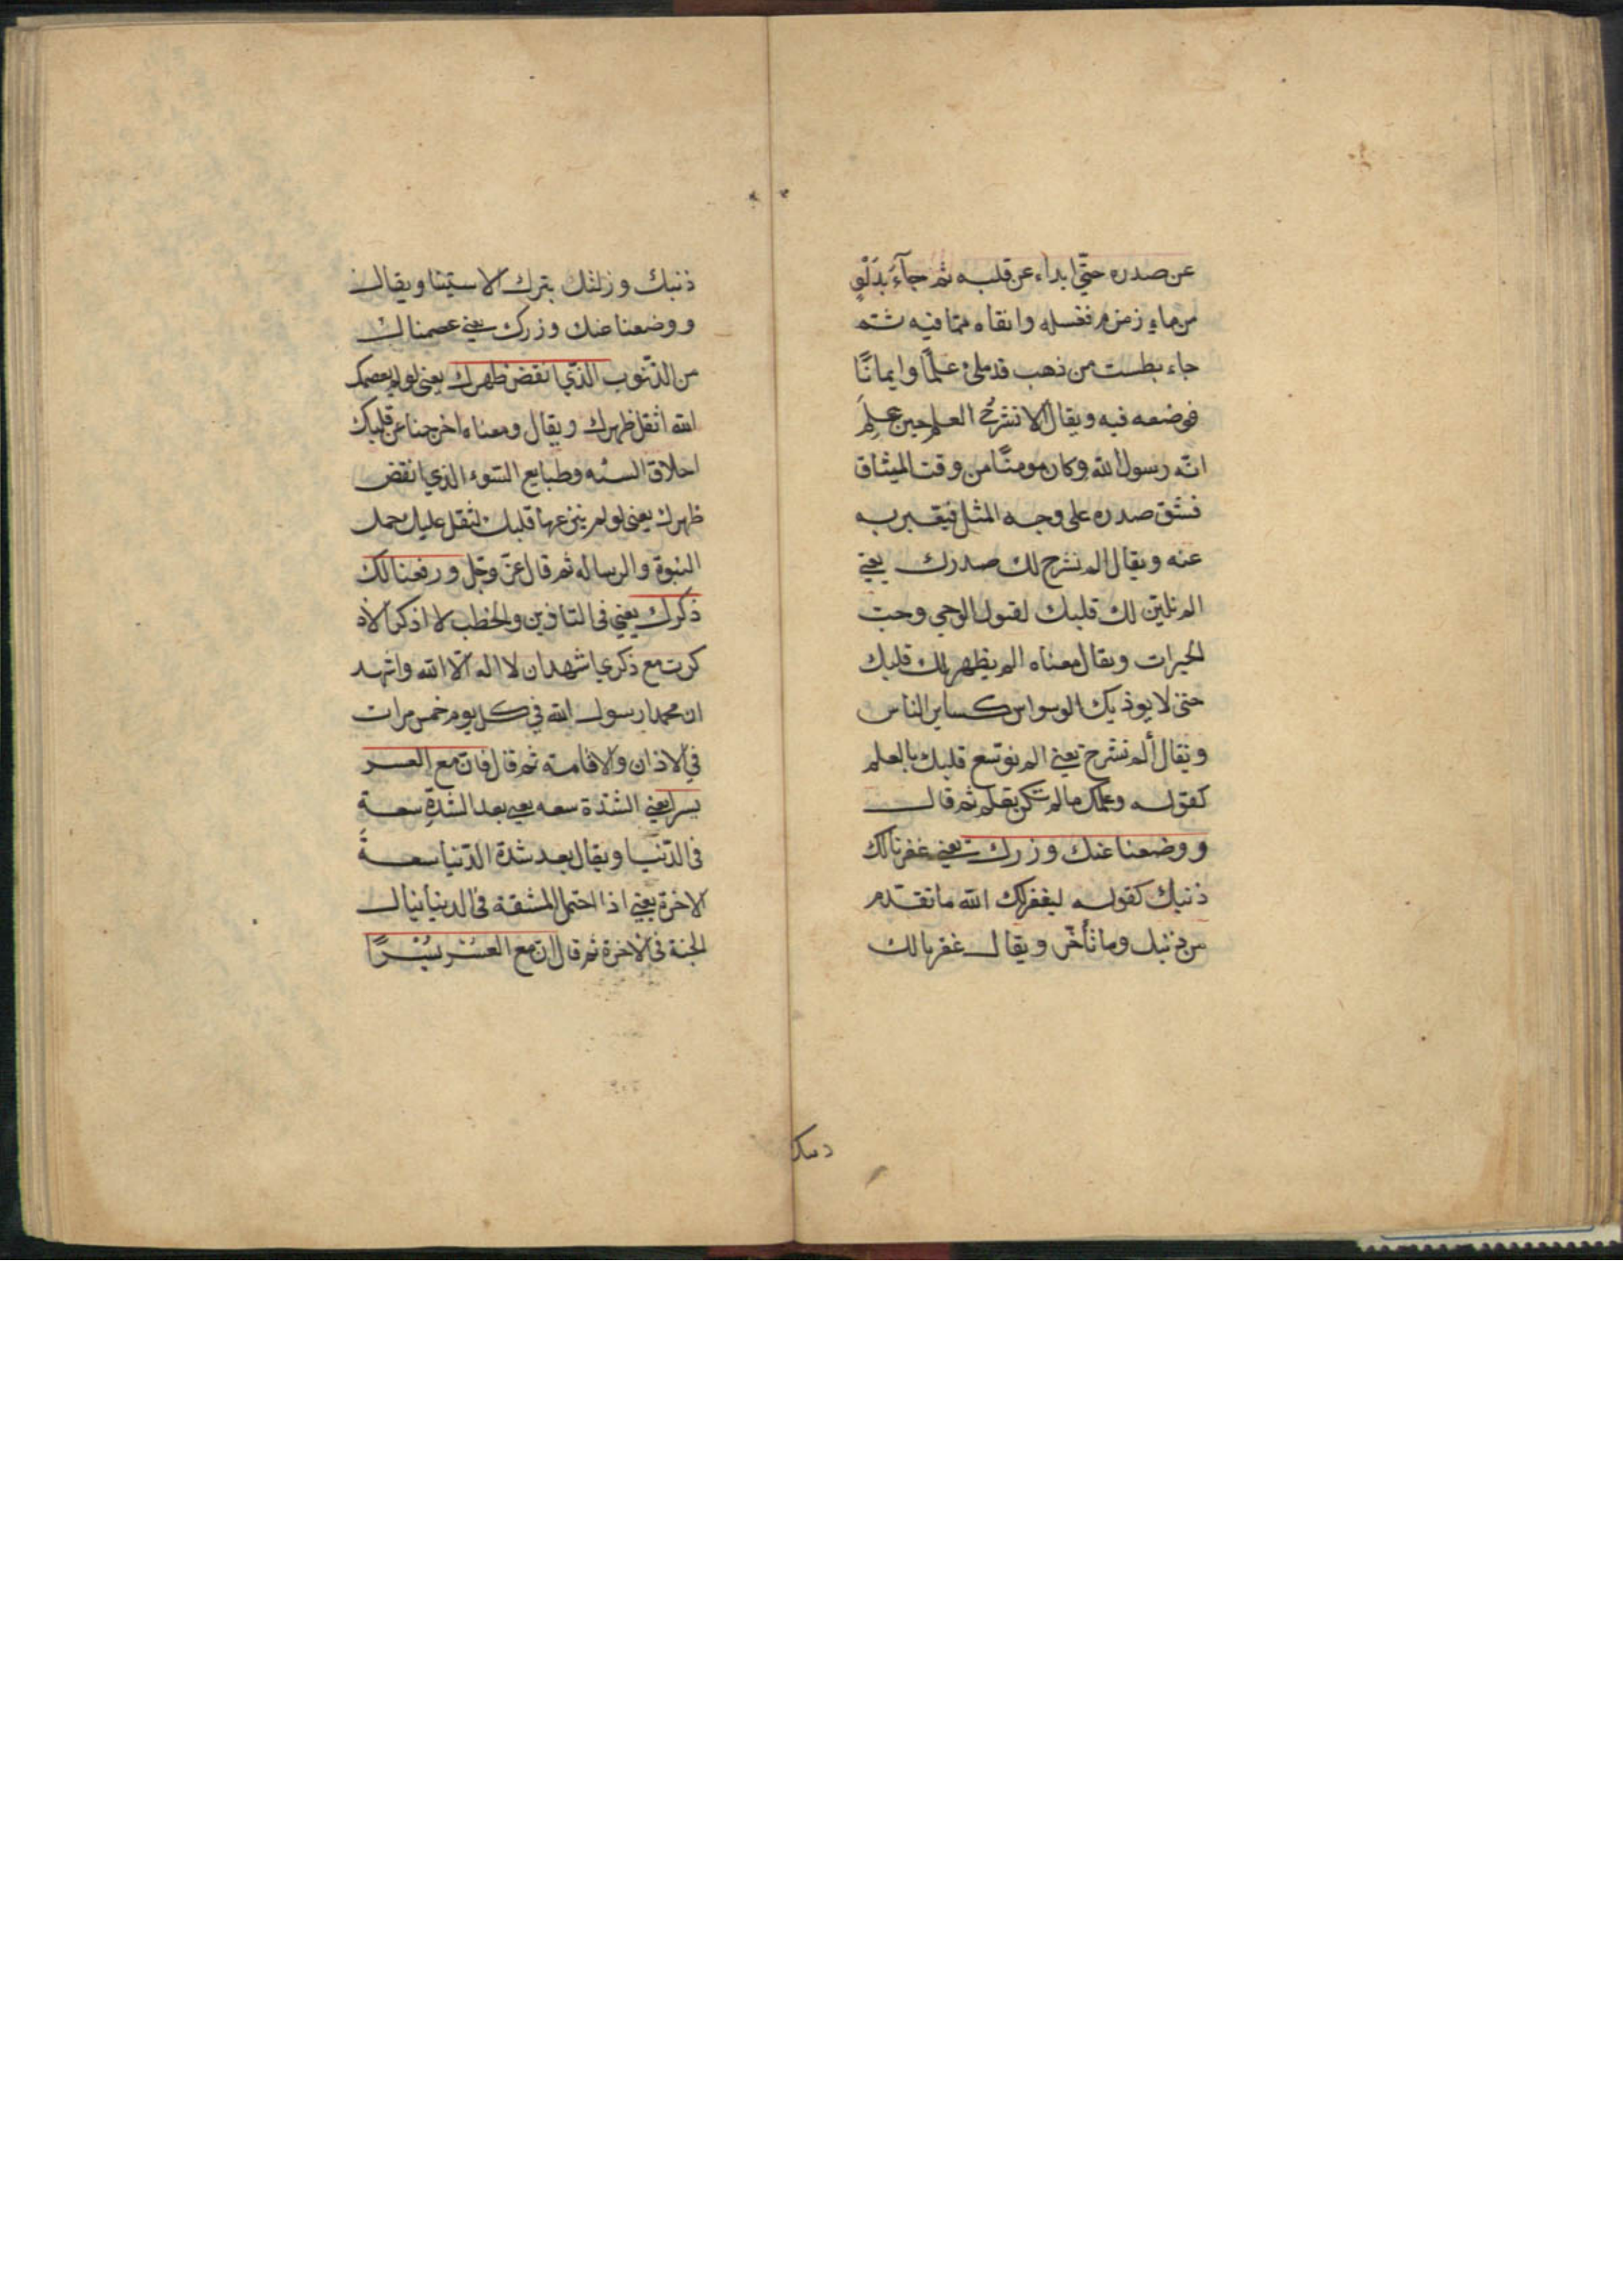 عن صدره حتى ابداء عن قلبه ثم جآء بدلو
من ماء زمزم فغسله وانقاه مما فيه ثم
جاء بطست من ذهب قد ملئ علمًا وايمانًا
فوضعه فيه ويقال الانشرح العلم حين علم
انه رسول الله وكان مومنًا من وقت الميثاق
فشق صدره على وجه المثل فيعبر به
عنه ويقال الم نشرح لك صدرك يعني
الم نلين لك قلبك لقبول الوحي وحب
الخيرات ويقال معناه الم يظهر لك قلبك
حتى لا يوذيك الوسواس كساير الناس
ويقال ألم نشرح يعني الم نوسع قلبك بالعلم
كقوله وعلمك ما لم تكن تعلم ثم قال
ووضعنا عنك وزرك يعني غفرنا لك
ذنبك كقوله ليغفر لك الله ما تقدم
من ذنبك وما تأخر ويقال غفرنا لك
ذنبك
ذنبك وزلتك بترك الاستثنا ويقال
ووضعنا عنك وزرك يعني عصمناك
من الذنوب الذي انقض ظهرك يعني لو لم يعصمك
الله اثقل ظهرك ويقال ومعناه اخرجنا عن قلبك
اخلاق السئه وطبايع السوء الذي انقض
ظهرك يعني لو لم ينزعها قلبك لثقل عليك حمل
النبوة والرساله ثم قال عز وجل ورفعنا لك
ذكرك يعني في التاذين والخطب لا اذكر الا ذ
كرت مع ذكري اشهد ان لا اله الا الله واشهد
ان محمدا رسول الله في كل يوم خمس مرات
في الاذان والاقامة ثم قال فان مع العسر
يسرا يعني الشدة سعه يعني بعد الشدة سعة
في الدنيا ويقال بعد شدة الدنيا سعة
الاخرة يعني اذا احتمل المشقة في الدنيا نيال
الجنة في الاخرة ثم قال ان مع العسر يسرًا